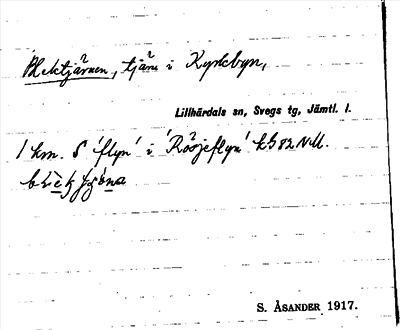 Blektjärnen, tjärn i Kyrkbyn,
Lillhärdals sn, Svegs tg, Jämtl. l.
1 km. S 'flyn' i 'Röojeflyn' kb 82 NM.
S. ÅSANDER 1917.